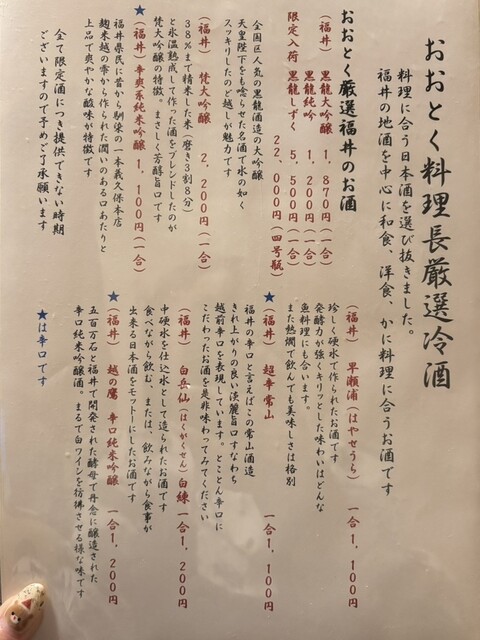 おおとく料理長厳選冷酒
料理に合う日本酒を選び抜きました。
福井の地酒を中心に和食、洋食、かに料理に合うお酒です
おおとく厳選福井のお酒
(福井) 黒龍大吟醸 1,870円(一合)
黒龍純吟 1,200円(一合)
限定入荷 黒龍しずく 5,500円(一合)
22,000円(四号瓶)
全国区人気の黒龍酒造の大吟醸
天皇陛下をも唸らせた名酒で水の如く
スッキリしたのど越しが魅力です
(福井) 梵大吟醸 2,200円(一合)
38%まで精米した米(磨き3割8分)
と氷温熟成して作った酒をブレンドしたのが
梵大吟醸の特徴。まさしく芳醇旨口です
★(福井)辛爽系純米吟醸 1,100円(一合)
福井県民に昔から馴染の一本義久保本店
麹米越の雫から作られた潤いのある口あたりと
上品で爽やかな酸味が特徴です
全て限定酒につき提供できない時期
ございますので予めご了承願います
(福井) 早瀬浦(はやせうら) 一合1,100円
珍しく硬水で作られたお酒です
発酵力が強くキリッとした味わいはどんな
魚料理にも合います。
また熱燗で飲んでも美味しさは格別
★(福井) 超辛常山 一合1,100円
福井の辛口と言えばこの常山酒造
きれ上がりの良い淡麗旨口すなわち
越前辛口を表現しています。とことん辛口に
こだわったお酒を是非味わってみてください
(福井) 白岳仙(はくがくせん)白練一合1,200円
中硬水を仕込水として造られたお酒です
食べながら飲む、または、飲みながら食事が
出来る日本酒をモットーにしたお酒です
★(福井) 越の鷹 辛口純米吟醸 一合1,200円
五百万石と福井で開発された酵母で丹念に醸造された
辛口純米吟醸酒。まるで白ワインを彷彿させる様な味です
★は辛口です